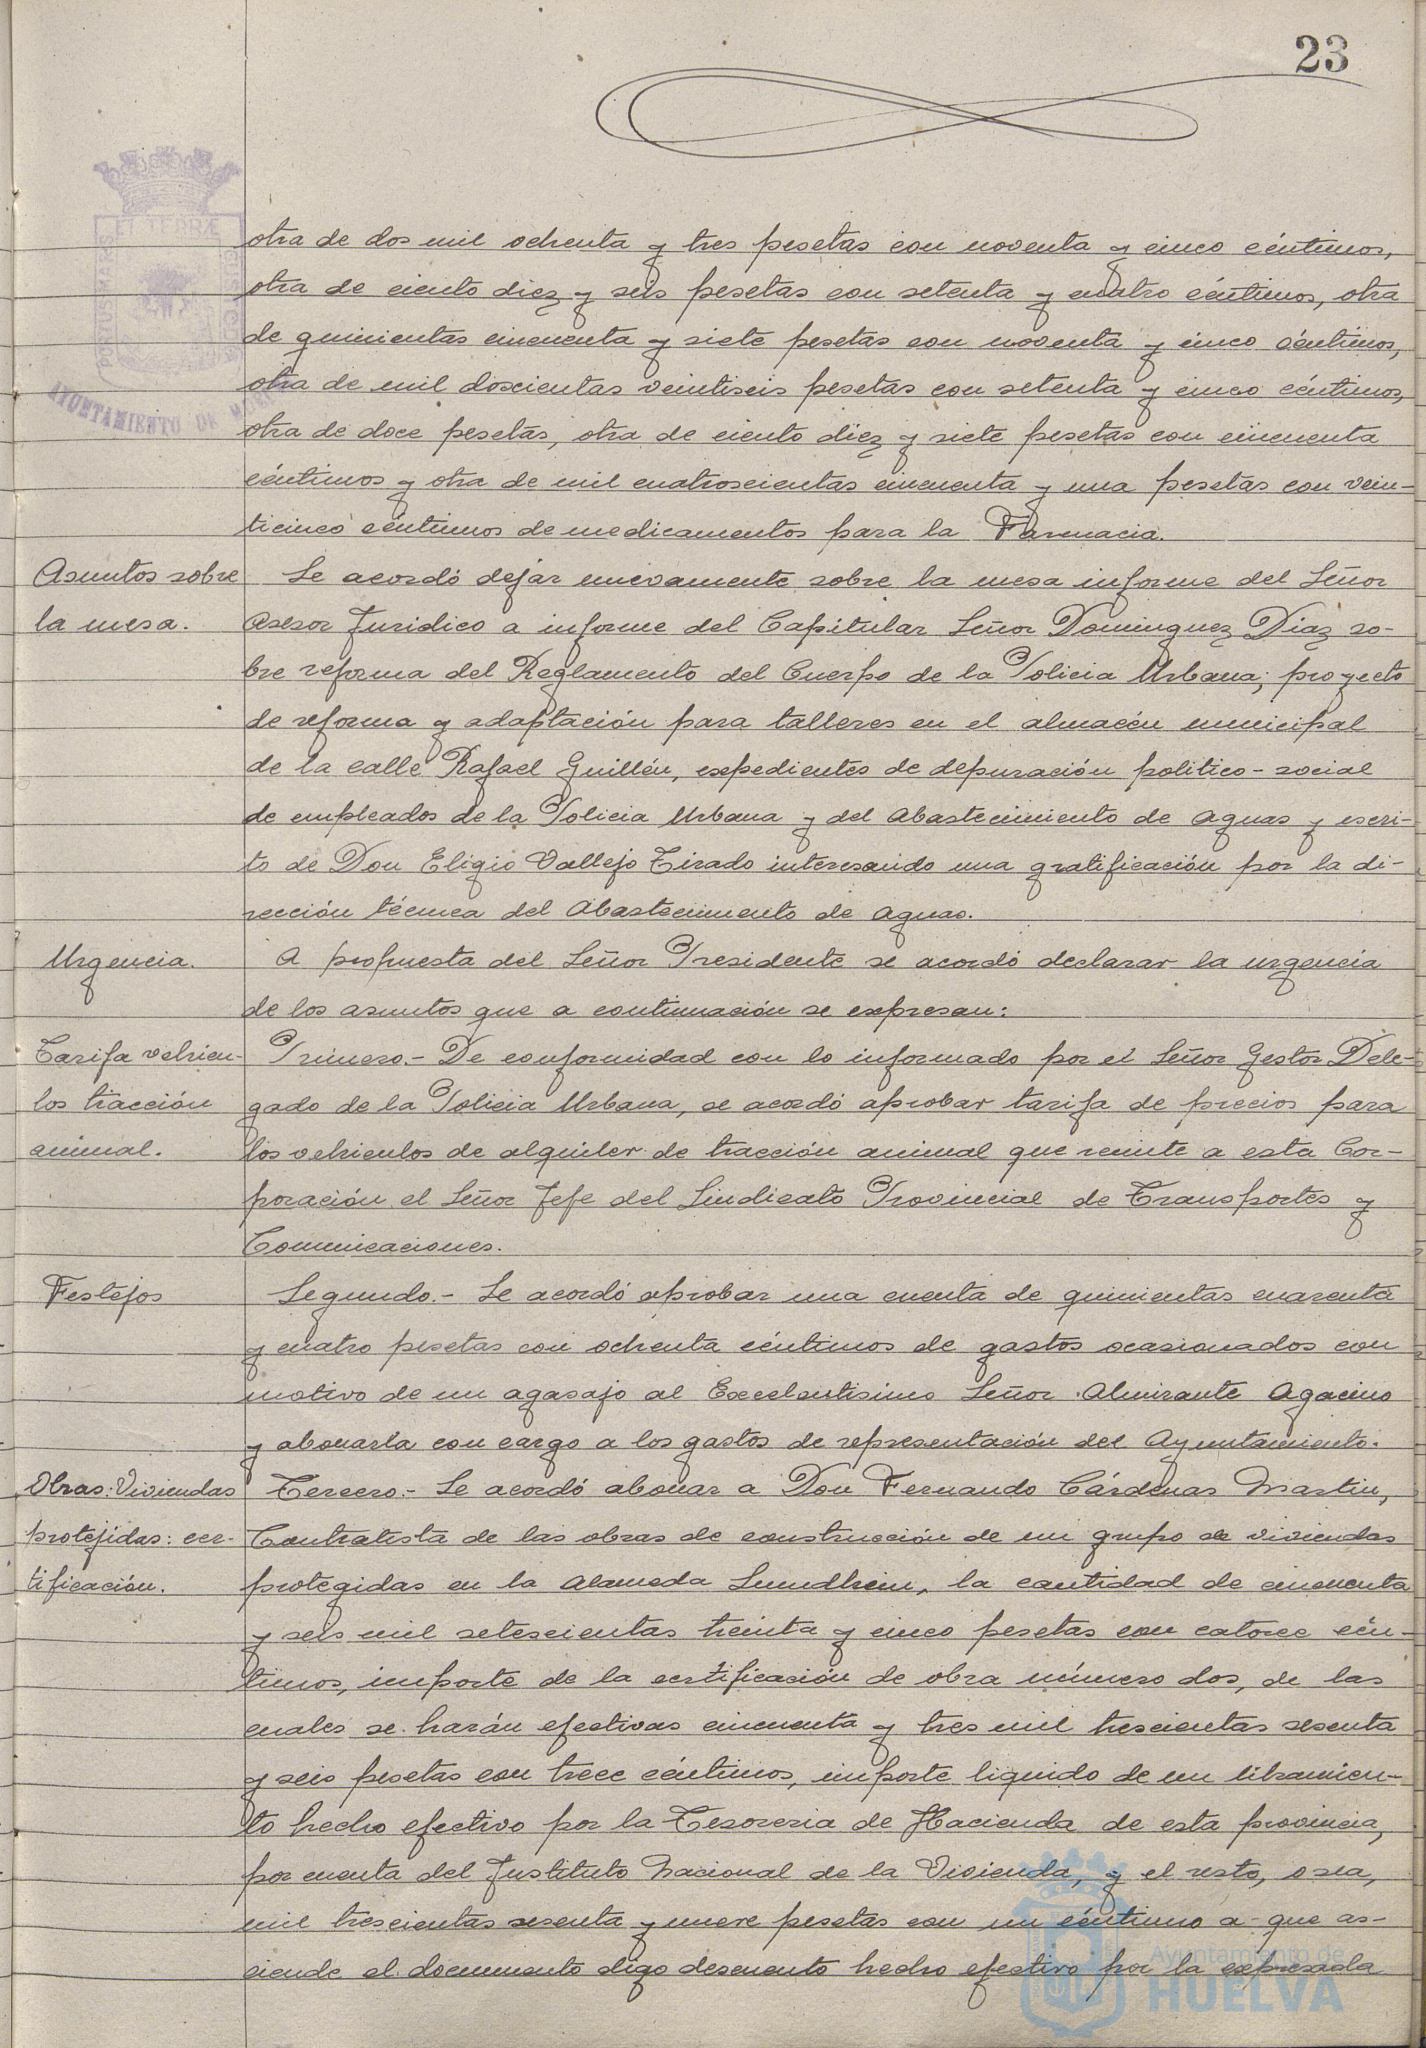 23
otra de dos mil ochenta y tres pesetas con noventa y cinco céntimos,
otra de ciento diez y seis pesetas con setenta y cuatro céntimos, otra
de quinientas cincuenta y siete pesetas con noventa y cinco céntimos,
otra de mil doscientas veintiseis pesetas con setenta y cinco céntimos,
otra de doce pesetas, otra de ciento diez y siete pesetas con cincuenta
céntimos y otra de mil cuatroscientas cincuenta y una pesetas con vein-
ticinco céntimos de medicamentos para la Farmacia.
Asuntos sobre
la mesa.
Se acordó dejar nuevamente sobre la mesa informe del Señor
Asesor Juridico a informe del Capitular Señor Dominguez Diaz so-
bre reforma del Reglamento del Cuerpo de la Policia Urbana; proyecto
de reforma y adaptación para talleres en el almacén municipal
de la calle Rafael Guillén, expedientes de depuración politico-social
de empleados de la Policia Urbana y del Abastecimiento de Aguas y escri-
to de Don Eligio Vallejo Tirado interesando una gratificación por la di-
rección técnica del Abastecimento de Aguas.
Urgencia.
A propuesta del Señor Presidente se acordó declarar la urgencia
de los asuntos que a continuación se expresan:
Tarifa vehicu-
los tracción
animal.
Primero.- De conformidad con lo informado por el Señor Gestor Dele-
gado de la Policia Urbana, se acordó aprobar tarifa de precios para
los vehiculos de alquiler de tracción animal que remite a esta Cor-
poración el Señor Jefe del Sindicato Provincial de Transportes y
Comunicaciones.
Festejos
Segundo.- Se acordó aprobar una cuenta de quinientas cuarenta
y cuatro pesetas con ochenta céntimos de gastos ocasionados con
motivo de un agasajo al Excelentisimo Señor Almirante Agacino
y abonarla con cargo a los gastos de representación del Ayuntamiento.
Obras: Viviendas
protejidas: cer-
tificación.
Tercero.- Se acordó abonar a Don Fernando Cárdenas Martin,
Contratista de las obras de construcción de un grupo de viviendas
protegidas en la Alameda Sundheim, la cantidad de cincuenta
y seis mil setescientas treinta y cinco pesetas con catorce cén-
timos, importe de la certificación de obra número dos, de las
cuales se harán efectivas cincuenta y tres mil trescientas sesenta
y seis pesetas con trece céntimos, importe liquido de un libramien-
to hecho efectivo por la Tesoreria de Hacienda de esta provincia,
por cuenta del Instituto Nacional de la Vivienda, y el resto, o sea,
mil trescientas sesenta y nueve pesetas con un céntimo a que as-
ciende el documento digo descuento hecho efectivo por la expresada
AYUNTAMIENTO DE
Ayuntamiento de
HUELVA